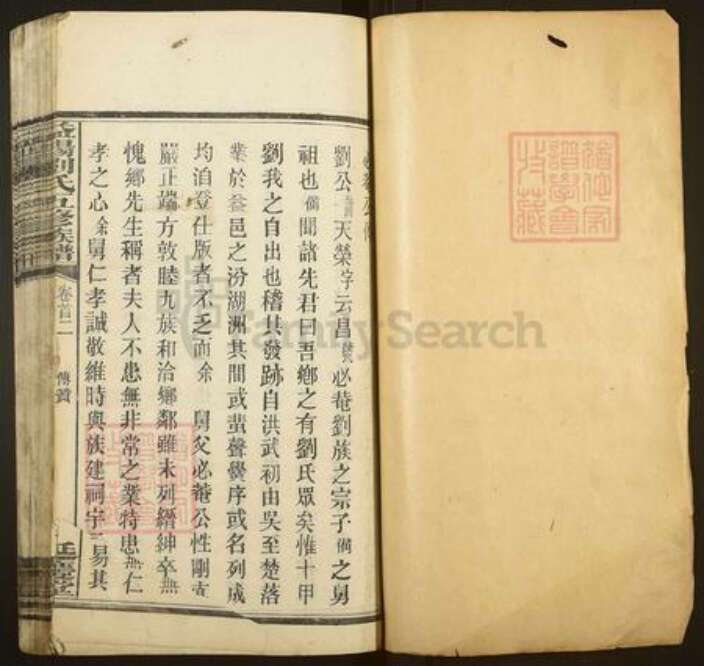 必菴公傳
劉公諱天榮字云昌號必菴劉族之宗子儞之舅
祖也儞聞諸先君曰吾鄉之有劉氏眾矣惟十甲
劉我之自出也稽其發跡自洪武初由吳至楚落
業於益邑之汾湖洲其間或蜚聲黌序或名列成
均洎登仕版者不乏而余舅父必菴公性剛直
嚴正端方敦睦九族和洽鄉鄰雖未列縉紳卒無
愧鄉先生稱者夫人不患無非常之業特患無仁
孝之心余舅仁孝誠敬維時與族建祠宇三易其
益陽劉氏五修族譜
卷首二
傳贊
FamilySearch